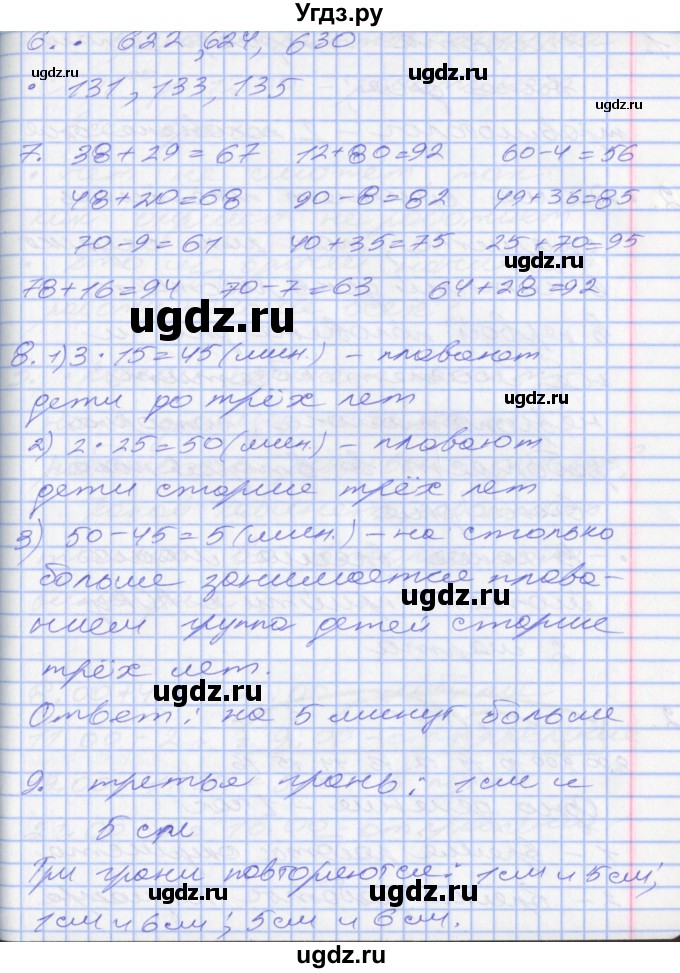 Угдз.ру
6. • 622, 624, 630
• 131, 133, 135
7. 38+29=67 12+80=92 60-4=56
48+20=68 90-8=82 49+36=85
70-9=61 40+35=75 25+70=95
78+16=94 70-7=63 64+28=92
8. 1) 3•15=45(мин.) – плавают
дети до трёх лет
2) 2•25=50(мин.) – плавают
дети старше трёх лет
3) 50-45=5(мин.) – на столько
больше занимается плава-
нием группа детей старше
трёх лет.
Ответ: на 5 минут больше
9. третья грань: 1см и
5см
Три грани повторяются: 1см и 5см;
1см и 6см; 5см и 6см.
ugdz.ru
ugdz.ru
ugdz.ru
ugdz.ru
ugdz.ru
ugdz.ru
ugdz.ru
ugdz.ru
ugdz.ru
ugdz.ru
ugdz.ru
ugdz.ru